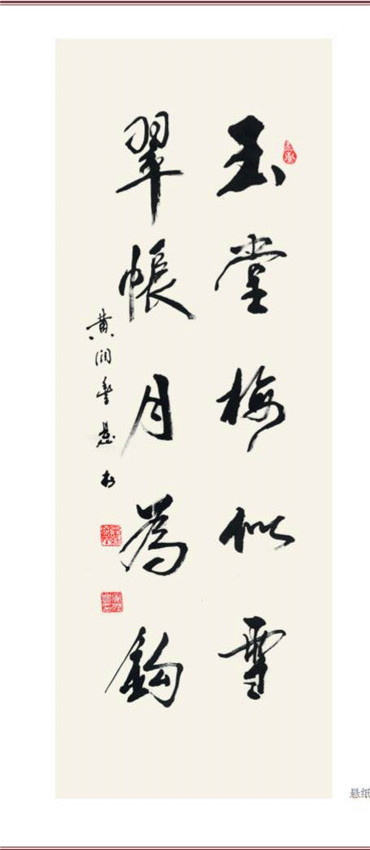 玉堂梅似雪
翠帳月為鈎
黄润丰悬書
悬纸